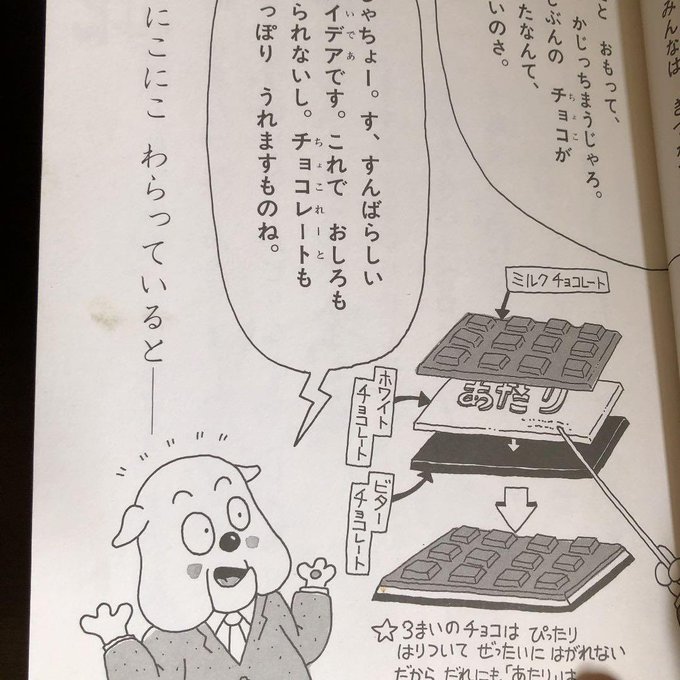 みんなは
と おもって、
かじっちまうじゃろ。
じぶんの チョコが
ちょこ
たなんて、
いのさ。
ミルクチョコレート
あたり
ホワイト
チョコレート
ビター
チョコレート
☆3まいのチョコは ぴったり
はりついて ぜったいに はがれない
だから だれにも「あたり」は
ゃちょー。す、すんばらしい
イデアです。これで おしろも
いであ
られないし。チョコレートも
ちょこれーと
っぽり うれますものね。
にこにこ わらっていると――